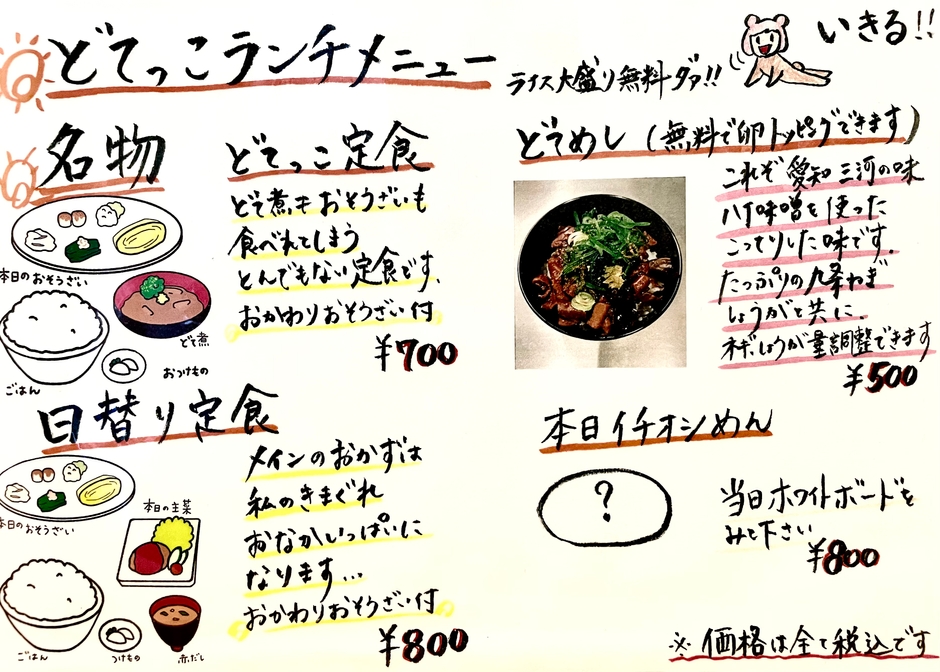 どてっこランチメニュー
ライス大盛り無料ダァ!!
いきる!!
名物
どてっこ定食
どて煮もおそうざいも
食べれてしまう
とんでもない定食です.
おかわりおそうざい付
¥700
本日のおそうざい
どて煮
ごはん
おつけもの
日替り定食
メインのおかずは
私のきまぐれ
おなかいっぱいに
なります...
おかわりおそうざい付
¥800
本日のおそうざい
本日の主菜
ごはん
つけもの
赤だし
どてめし (無料で卵トッピングできます)
これぞ愛知三河の味
八丁味噌を使った
こってりした味です.
たっぷりの九条ねぎ
しょうがと共に.
ネギしょうが量調整できます
¥500
本日イチオシめん
?
当日ホワイトボードを
みて下さい
¥800
※価格は全て税込です